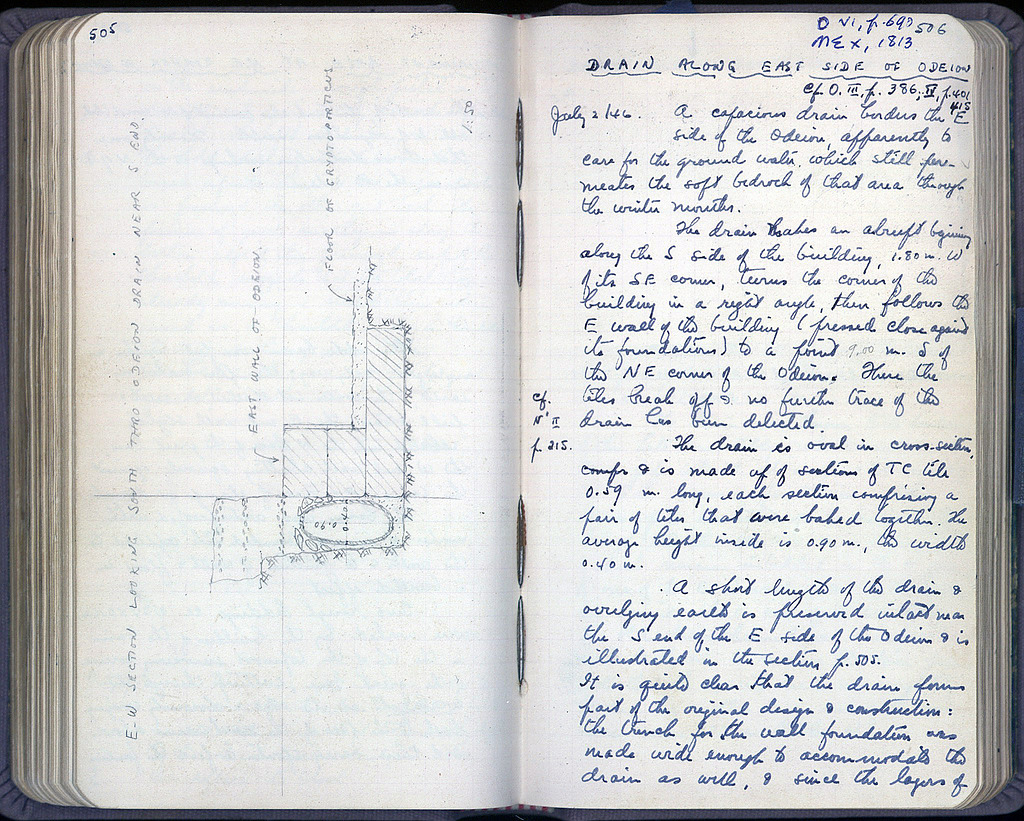 505
E-W SECTION LOOKING SOUTH THRO ODEION DRAIN NEAR S END.
EAST WALL OF ODEION.
FLOOR OF CRYPTOPORTICUS.
1:50
0.90
0.40
O VI, p. 690 506
ME X, 1813
DRAIN ALONG EAST SIDE OF ODEION
cf. O. III, p. 386, IV, p. 401
415
July 2/46. A capacious drain borders the E
side of the Odeion, apparently to
care for the ground water, which still per-
meates the soft bedrock of that area through
the winter months.
The drain makes an abrupt bgining
along the S side of the building, 1.80 m. W
of its SE corner, turns the corner of the
building in a right angle, then follows the
E wall of the building (pressed close against
its foundations) to a point 9.00 m. S of
the NE corner of the Odeion. Here the
tiles break off & no further trace of the
drain has been detected.
cf.
N' II
p. 215.
The drain is oval in cross-section,
comps & is made up of sections of TC tile
0.59 m. long, each section comprising a
pair of tiles that were baked together. The
average height inside is 0.90 m., the width
0.40 m.
A short length of the drain &
overlying earth is preserved intact near
the S end of the E side of the Odeion & is
illustrated in the section p. 505.
It is quite clear that the drain forms
part of the original design & construction:
the trench for the wall foundation was
made wide enough to accommodate the
drain as well, & since the layers of